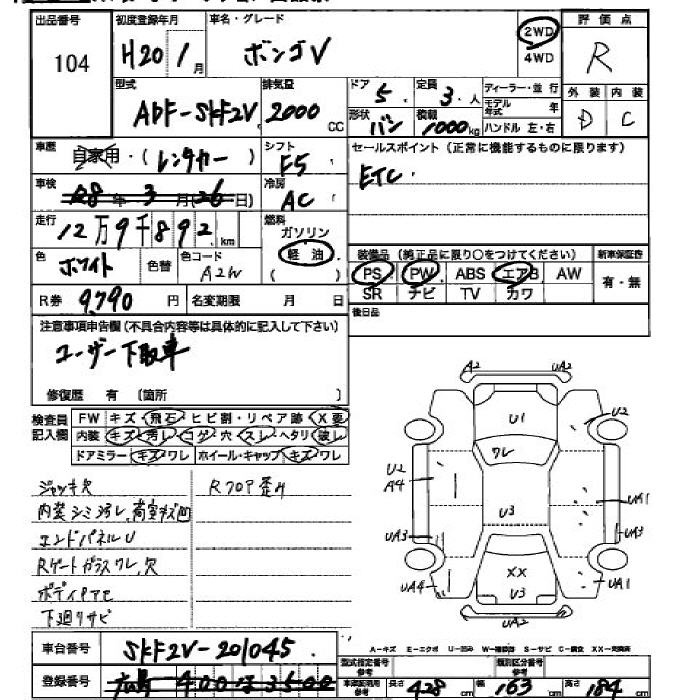 出品番号 初度登録年月 車名・グレード 評価点
104 H20年 1月 ボンゴV 2WD 4WD R
型式 排気量 ドア 定員 ディーラー・並行 外装 内装
ABF-SKF2V 2000 CC 5 3人 モデル年式 年 D C
形状 バン 積載 1000kg ハンドル 左・右
車歴 自家用・(レンタカー) シフト F5 セールスポイント(正常に機能するものに限ります)
車検 R8年3月(26日) 冷房 AC ETC.
走行 12万9千892km 燃料 ガソリン
色 ホワイト 色替 色コード A2W 軽油 ( )
装備品(純正品に限り○をつけてください) 新車保証書
PS PW ABS エアB AW 有・無
SR ナビ TV カワ
R券 9,790円 名変期限 月 日
後日品
注意事項申告欄(不具合内容等は具体的に記入して下さい)
ユーザー下取車
修復歴 有 〔箇所 〕
検査員記入欄
FW キズ・飛石・ヒビ割・リペア跡・X要
内装 キズ・汚レ・コゲ・穴・スレ・ヘタリ・破レ
ドアミラー キズ・ワレ ホイール・キャップ キズ・ワレ
ジャッキ欠 Rフロア歪み
内装シミ汚レ,荷室キズ凹
エンドパネルU
Rゲートガラスワレ,欠
ボディP〆モ
下廻りサビ
A2 UA2
U1 U2
ワレ
U2 A4
U3 UA1
UA3 UA3
XX
UA4 U3 UA1
UA2
A-キズ E-エクボ U-凹み W-補修跡 S-サビ C-腐食 XX-交換済
車台番号 SKF2V-201045
型式指定番号 参考 類別区分番号 参考
登録番号 広島 400 ほ 3500
車庫証明用参考 長さ 428cm 幅 163cm 高さ 184cm